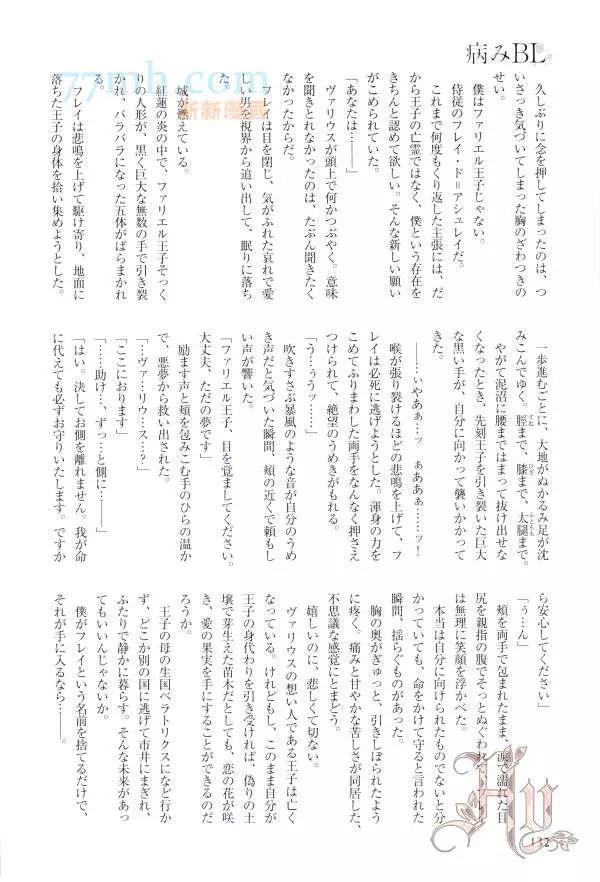 病みBL
久しぶりに念を押してしまったのは、つ
いさっき気づいてしまった胸のざわつきの
せい。
僕はファリエル王子じゃない。
侍従のフレイ・ド＝アシュレイだ。
これまで何度もくり返した主張には、だ
から王子の亡霊ではなく、僕という存在を
きちんと認めて欲しい。そんな新しい願い
がこめられていた。
「あなたは――」
ヴァリウスが頭上で何かつぶやく。意味
を聞きとれなかったのは、たぶん聞きたく
なかったからだ。
フレイは目を閉じ、気がふれた哀れで愛
しい男を視界から追い出して、眠りに落ち
た。
城が燃えている。
紅蓮の炎の中で、ファリエル王子そっく
りの人形が、黒く巨大な無数の手で引き裂
かれ、バラバラになった五体がばらまかれ
る。
フレイは悲鳴を上げて駆け寄り、地面に
落ちた王子の身体を拾い集めようとした。
一歩進むごとに、大地がぬかるみ足が沈
みこんでゆく。脛まで、膝まで、太腿まで。
やがて泥沼に腰まではまって抜け出せな
くなったとき、先刻王子を引き裂いた巨大
な黒い手が、自分に向かって襲いかかって
きた。
――……いやああぁ…ッ　ぁあああぁ……ッ！
喉が張り裂けるほどの悲鳴を上げて、フ
レイは必死に逃げようとした。渾身の力を
こめてふりまわした両手をなんなく押さえ
つけられて、絶望のうめきがもれる。
「う…ぅうッ……」
吹きすさぶ暴風のような音が自分のうめ
き声だと気づいた瞬間、頬の近くで頼もし
い声が響いた。
「ファリエル王子、目を覚ましてください。
大丈夫、ただの夢です」
励ます声と頬を包みこむ手のひらの温か
で、悪夢から救い出された。
「…ヴァ…リウ…ス…？」
「ここにおります」
「……助け…、ずっ…と側に――」
「はい。決してお側を離れません。我が命
に代えても必ずお守りいたします。ですか
ら安心してください」
「ぅ…ん」
頬を両手で包まれたまま、涙で濡れた目
尻を親指の腹でそっとぬぐわれて、フレイ
は無理に笑顔を浮かべた。
本当は自分に向けられたものでないと分
かっていても、命をかけて守ると言われた
瞬間、揺らぐものがあった。
胸の奥がぎゅっと、引きしぼられたよう
に疼く。痛みと甘やかな苦しさが同居した、
不思議な感覚にとまどう。
嬉しいのに、悲しくて切ない。
ヴァリウスの想い人である王子は亡く
なっている。けれどもし、このまま自分が
王子の身代わりを引き受ければ、偽りの土
壌で芽生えた苗木だとしても、恋の花が咲
き、愛の果実を手にすることができるのだ
ろうか。
王子の母の生国ベラトリクスになど行か
ず、どこか別の国に逃げて市井にまぎれ、
ふたりで静かに暮らす。そんな未来があっ
てもいいんじゃないか。
僕がフレイという名前を捨てるだけで、
それが手に入るなら――。
132
77mh.com
新新漫畫